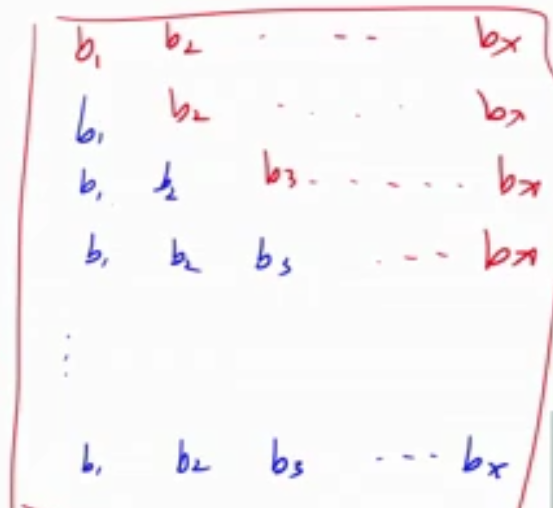 b₁ b₂ . -- bx
b₁ b₂ . . . . bx
b₁ b₂ b₃ . - . . - . bx
b₁ b₂ b₃ . -- bx
⋮
b₁ b₂ b₃ --- bx